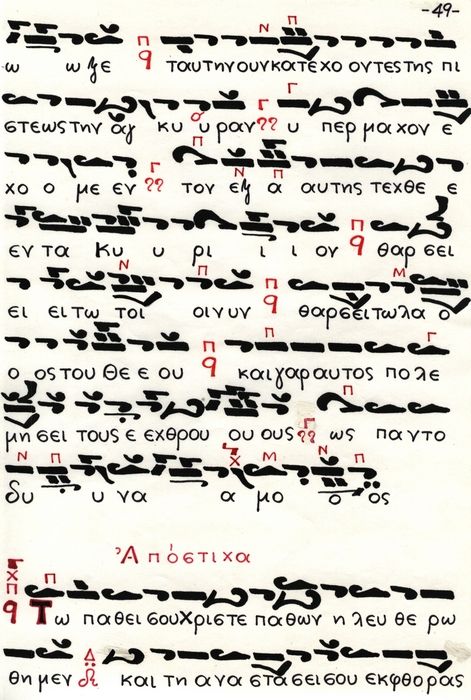 -49-
ω ω ζε ταυτηνουνκατεχο οντεςτης πι
στεωςτην αγ κυ υ ραν υ περ μαχον ε
χο ο με εν τον εξ α αυτης τεχθε ε
εν τα Κυ υ ρι ι ι ον θαρ σει
ει ει τω τοι οι νυν θαρσειτωλα ο
ο οςτου Θε ε ου και γαραυτος πο λε
μη σει τους ε εχθρου ου ους ως παντο
δυ υ να α μο ο ος
Ἀπόστιχα
Τω παθει σουΧριστε παθων η λευ θε ρω
θη μεν και τη ανα στασεισου εκφθορας